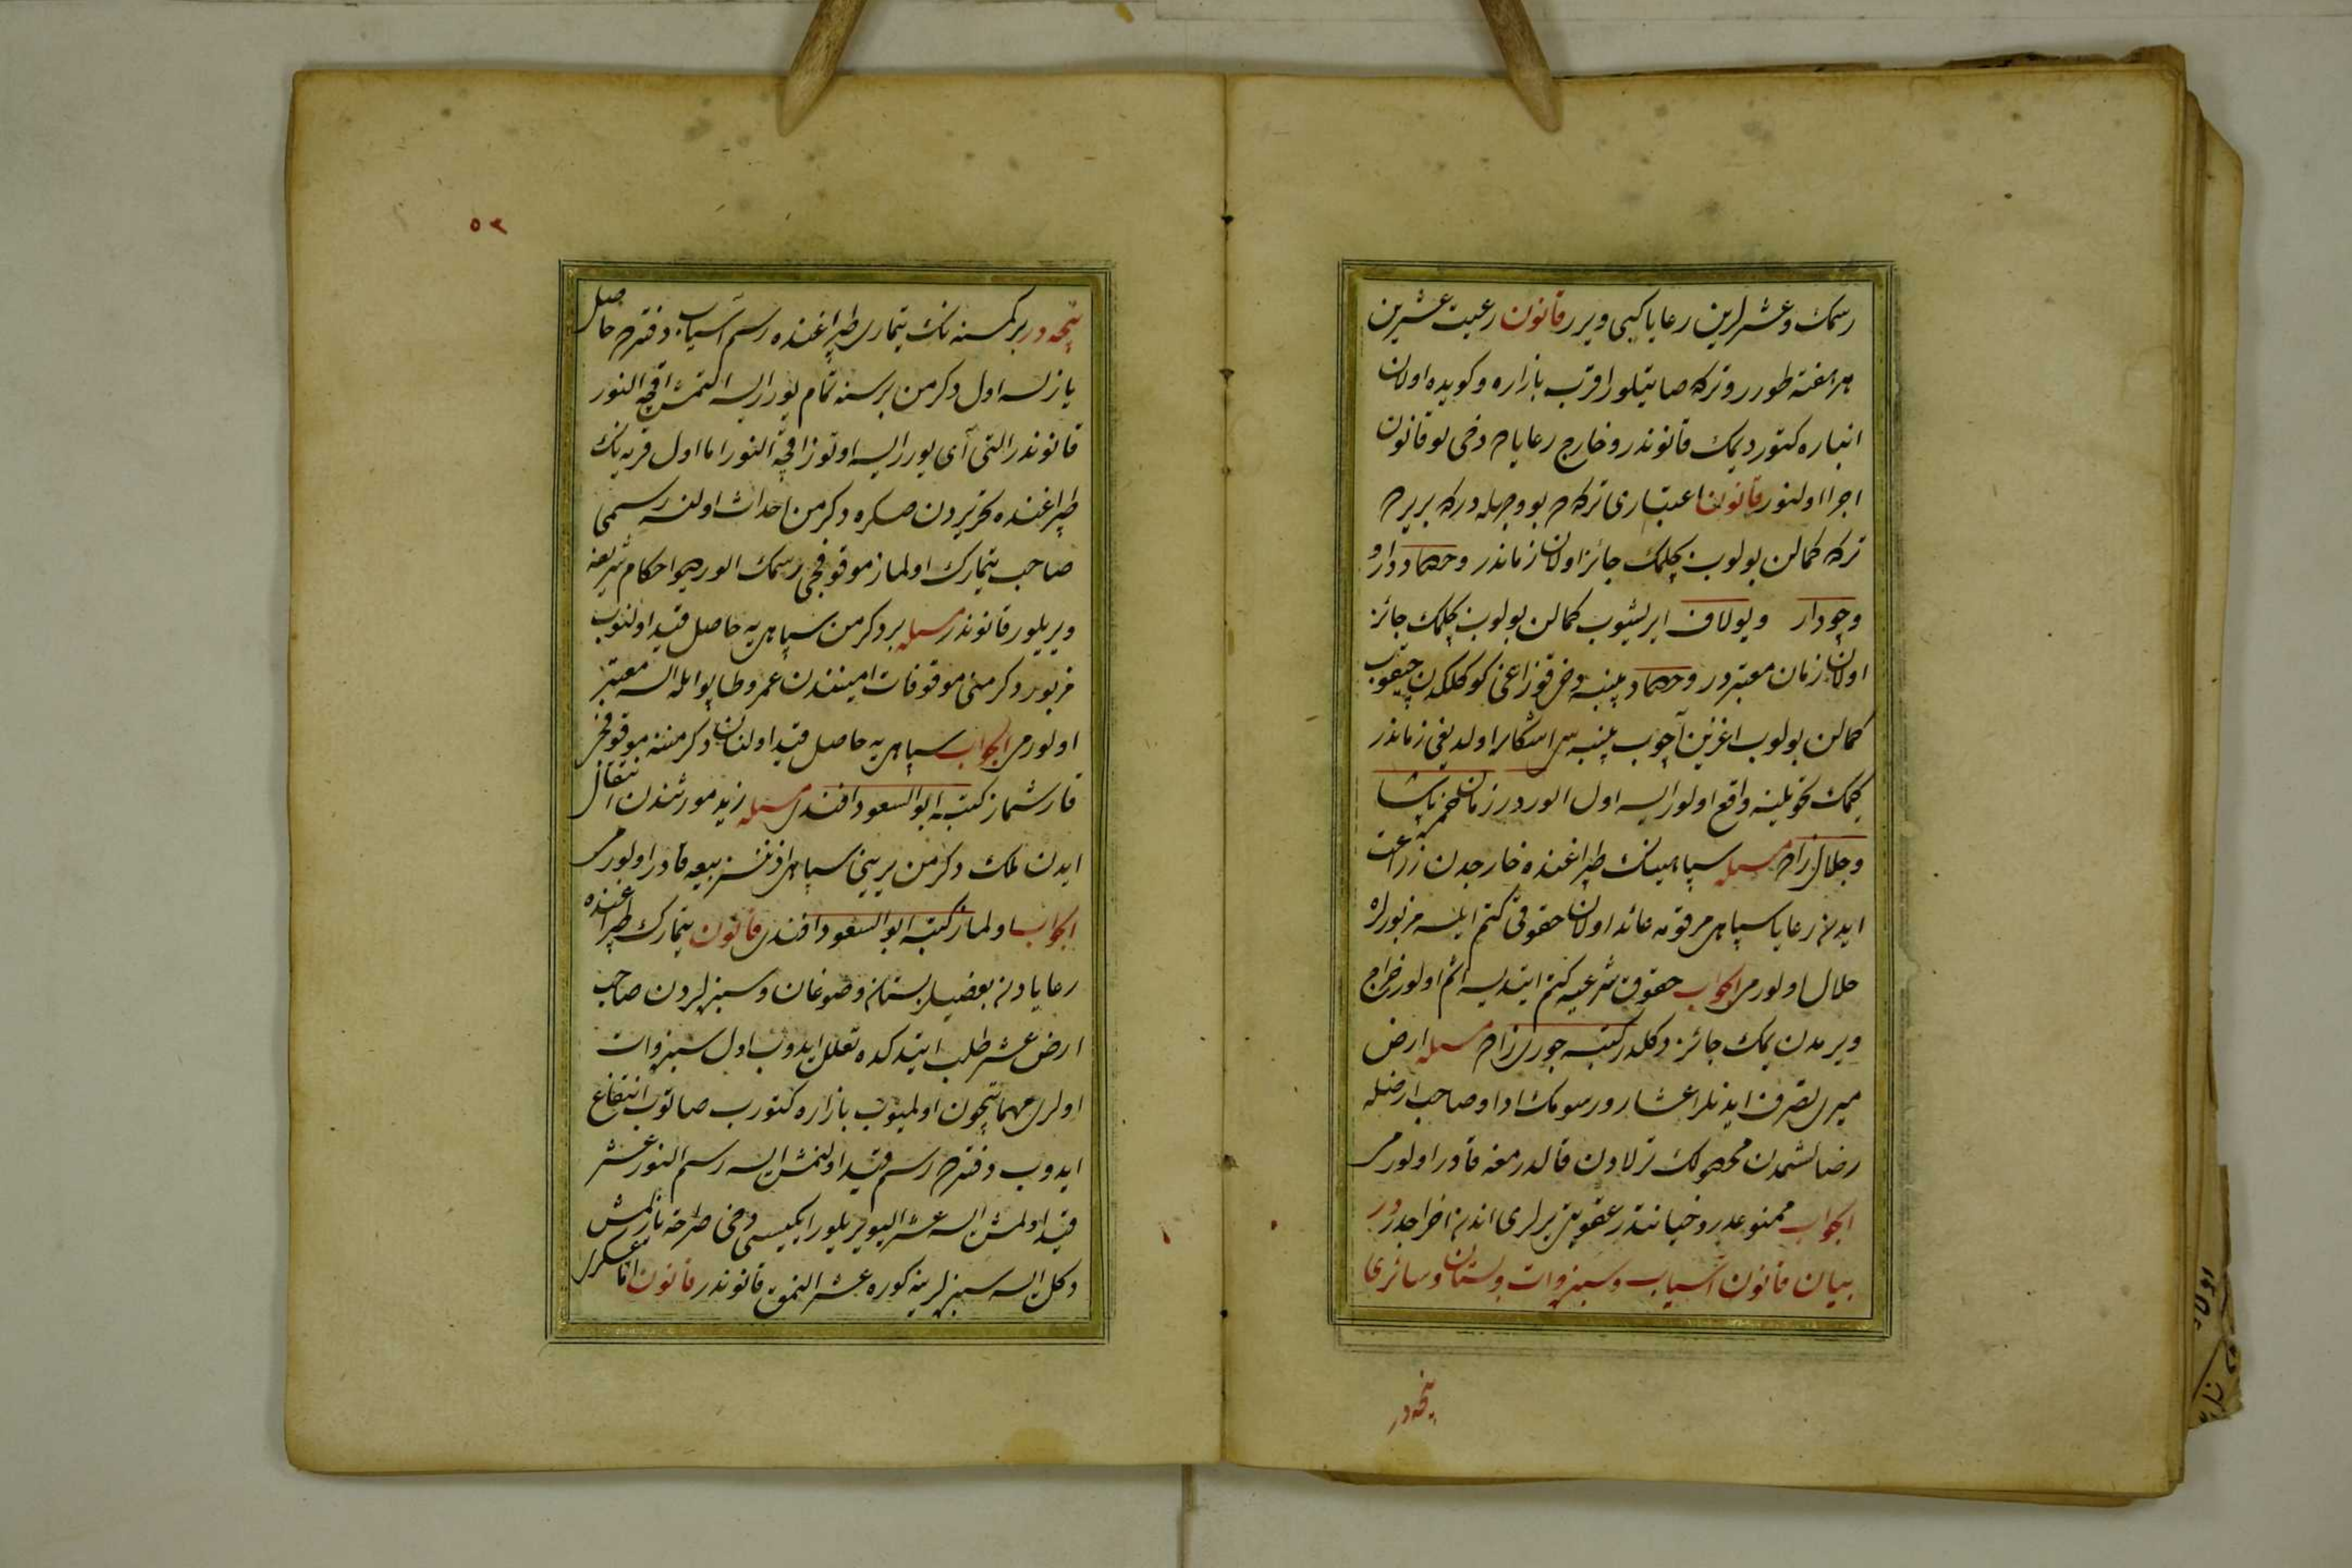 رسمك وعشرلرين رعايا كبى ويرر قانون رعيت عشرين
بر هفته طورر و تركه صاتيلور اقرب بازاره و كويده اولان
انباره كتورديمك قانوندر و خارج رعايا دخى بو قانون
اجرا اولنور قانون اعتبارى تركه بو وجهله دركه بريرده
تركه كمالن بولوب بچلمك جائز اولان زماندر و حصاد دارو
وچودار ويولاف ايريشوب كمالن بولوب بچلمك جائز
اولان زمان معتبردر و حصاد پنبه دخى قوزاغى كوكلكدن چيقوب
كمالن بولوب اغزين آچوب پنبه سى اشكاره اولديغى زماندر
كيمك تحويلينه واقع اولور ايسه اول الور در زمان حمزه پاشا
وجلال زاده مسئله سپاهينك طپراغنده خارجدن زراعت
ايدن رعايا سپاهى مرقومه عائد اولان حقوقى كتم ايلسه مزبورلره
حلال اولورمى الجواب حقوق شرعيه كتم ايتديسه اثم اولور خراج
ويرمدن يمك جائز دكلدر كتبه جورى زاده مسئله ارض
ميرى تصرف ايدنلر اعشار و رسومك ادا و صاحب ارضله
رضالشمدن محصولك ترلادن قالدرمغه قادر اولورمى
الجواب ممنوعلدر و خيانتدر عقوبتن يرلرى اندن اخراجدر در
بيان قانون آسياب و سبزوات و بستان و سائرى
نيچه در
٥٢
نيچه در بر كمسنه نك تيمارى طپراغنده رسم آسياب دفترده حاصل
يازلسه اول دكرمن بر سنه تمام يورر ايسه التمش اقچه النور
قانوندر التى آى يورر ايسه اوتوز اقچه النور اما اول قريه نك
طپراغنده تحريردن صكره دكرمن احداث اولنسه رسمى
صاحب تيمارك اولماز موقوفجى رسمك الور ديو احكام شريفه
ويريلور قانوندر مسئله بر دكرمن سپاهى يه حاصل قيد اولنوب
مزبور دكرمنى موقوفات امينندن عمرو طاپو ايله السه معتبر
اولورمى الجواب سپاهى يه حاصل قيد اولنان دكرمنه موقوفجى
قارشماز كتبه ابو السعود افندى مسئله زيد مورثندن انتقال
ايدن ملك دكرمن يرينى سپاهى اذننسز بيعه قادر اولورمى
الجواب اولماز كتبه ابو السعود افندى قانون تيمارك طپراغنده
رعايادن بعضيلر بستان و صوغان و سبزلردن صاحب
ارض عشر طلب ايتدكده تعلل ايدوب اول سبزوات
اولرى مهماتيچون اولميوب بازاره كتورب صاتوب انتفاع
ايدوب دفترده رسم قيد اولنمش ايسه رسم النور عشر
قيد اولمش ايسه عشر اليويريلور ايكيسى دخى صراحة يازلمش
دكل ايسه سبزلرينه كوره عشر النمق قانوندر قانون اما عسكرى